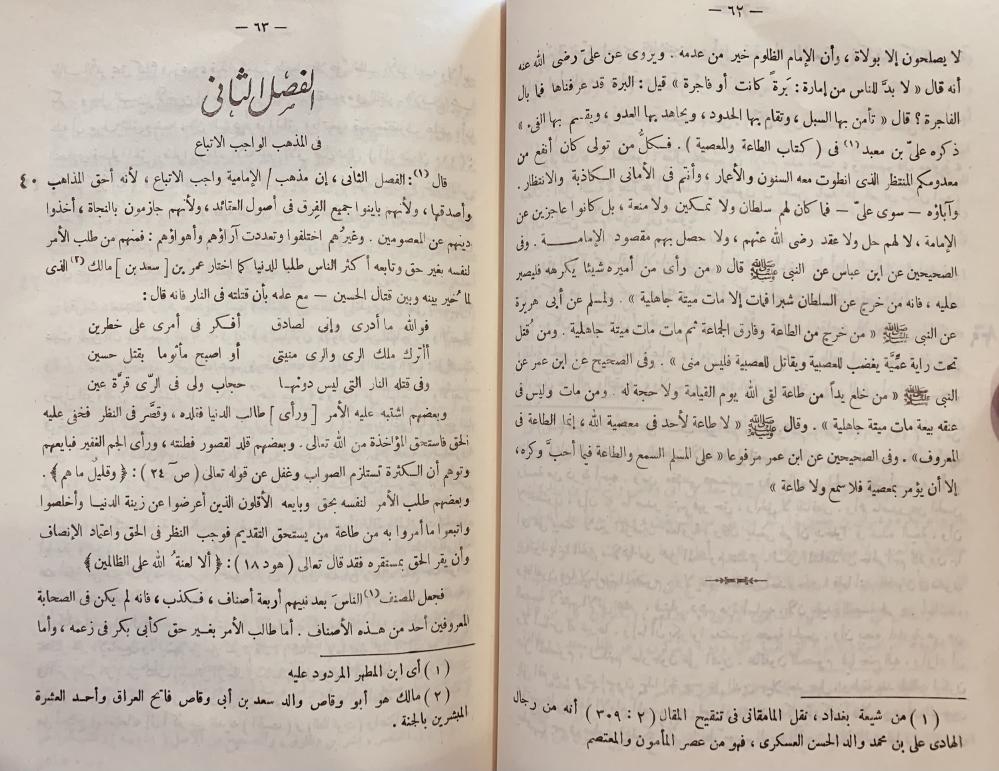 — ٦٢ —
لا يصلحون إلا بولاة ، وأن الإمام الظلوم خير من عدمه . ويروى عن علىّ رضى الله عنه
أنه قال « لا بدَّ للناس من إمارة : بَرةً كانت أو فاجرة » قيل : البرة قد عرفناها فما بال
الفاجرة ؟ قال « تأمن بها السبل ، وتقام بها الحدود ، ويجاهد بها العدو ، ويقسم بها الفىء »
ذكره علىّ بن معبد (١) فى ( كتاب الطاعة والمعصية ) . فكلُّ من تولى كان أنفع من
معدومكم المنتظر الذى انطوت معه السنون والأعمار ، وأنتم فى الأمانى الكاذبة والانتظار .
وآباؤه — سوى علىّ — فما كان لهم سلطان ولا تمكين ولا منعة ، بل كانوا عاجزين عن
الإمامة ، لا لهم حل ولا عقد رضى الله عنهم ، ولا حصل بهم مقصود الإمامة . وفى
الصحيحين عن ابن عباس عن النبى ﷺ قال « من رأى من أميره شيئا يكرهه فليصبر
عليه ، فانه من خرج عن السلطان شبرا فمات إلا مات ميتة جاهلية » . ولمسلم عن أبى هريرة
عن النبى ﷺ « من خرج من الطاعة وفارق الجماعة ثم مات مات ميتة جاهلية . ومن قُتل
تحت راية عمِّيَّة يغضب للعصبية ويقاتل للعصبية فليس منى » . وفى الصحيح عن ابن عمر عن
النبى ﷺ « من خلع يداً من طاعة لقى الله يوم القيامة ولا حجة له . ومن مات وليس فى
عنقه بيعة مات ميتة جاهلية » . وقال ﷺ « لا طاعة لأحد فى معصية الله ، إنما الطاعة فى
المعروف» . وفى الصحيحين عن ابن عمر مرفوعا « على المسلم السمع والطاعة فيما أحبَّ وكره،
إلا أن يؤمر بمعصية فلا سمع ولا طاعة »
( ١ ) من شيعة بغداد ، نقل المامقانى فى تنقيح المقال ( ٢ : ٣٠٩ ) أنه من رجال
الهادى على بن محمد والد الحسن العسكرى ، فهو من عصر المأمون والمعتصم
— ٦٣ —
الفصل الثانى
فى المذهب الواجب الاتباع
قال (١) : الفصل الثانى ، إن مذهب / الإمامية واجب الاتباع ، لأنه أحق المذاهب ٤٠
وأصدقها ، ولأنهم باينوا جميع الفِرق فى أصول العقائد ، ولأنهم جازمون بالنجاة ، أخذوا
دينهم عن المعصومين . وغيرُهم اختلفوا وتعددت آراؤهم وأهواؤهم : فمنهم من طلب الأمر
لنفسه بغير حق وتابعه أكثر الناس طلبا للدنيا كما اختار عمر بن [ سعد بن ] مالك (٢) الذى
لما خُير بينه وبين قتال الحسين — مع علمه بأن قتلته فى النار فانه قال :
فوالله ما أدرى وإنى لصادق أفكر فى أمرى على خطرين
أأترك ملك الرى والرى منيتى أو اصبح مأثوما بقتل حسين
وفى قتله النار التى ليس دونها حجاب ولى فى الرّى قرَّة عين
وبعضهم اشتبه عليه الأمر [ ورأى ] طالب الدنيا فقلده ، وقصَّر فى النظر فخفى عليه
الحق فاستحق المؤاخذة من الله تعالى . وبعضهم قلد لقصور فطنته ، ورأى الجم الغفير فبايعهم
وتوهم أن الكثرة تستلزم الصواب وغفل عن قوله تعالى ( صٓ ٢٤ ) : ﴿ وقليلٌ ما هم ﴾ .
وبعضهم طلب الأمر لنفسه بحق وبايعه الأقلون الذين أعرضوا عن زينة الدنيا وأخلصوا
واتبعوا ما أمروا به من طاعة من يستحق التقديم فوجب النظر فى الحق واعتماد الإنصاف
وأن يقر الحق بمستقره فقد قال تعالى ( هود ١٨ ) : ﴿ ألا لعنةُ الله على الظالمين ﴾
فجعل المصنف (١) الناسَ بعد نبيهم أربعة أصناف ، فكذب ، فانه لم يكن فى الصحابة
المعروفين أحد من هذه الأصناف . أما طالب الأمر بغير حق كأبى بكر فى زعمه ، وأما
( ١ ) أى ابن المطهر المردود عليه
( ٢ ) مالك هو أبو وقاص والد سعد بن أبى وقاص فاتح العراق وأحد العشرة
المبشرين بالجنة .